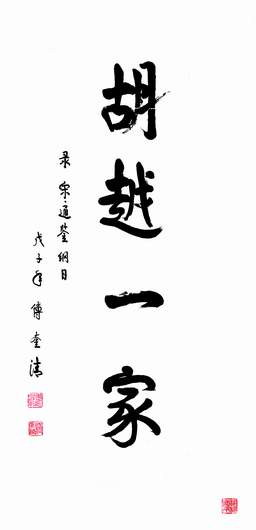 胡越一家
录宋通鉴纲目
戊子年傅奎清